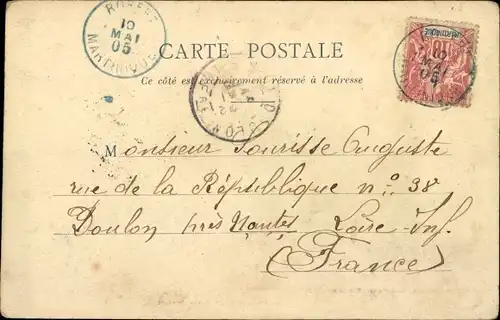 10
MAI
05
MARTINIQUE
CARTE POSTALE
Ce côté est exclusivement réservé à l'adresse
10
MAI
05
MARTINIQUE
Monsieur Sourisse Auguste
rue de la République n° 38
Doulon près Nantes Loire-Inf.
(France)